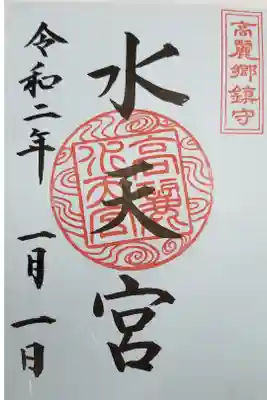 高麗郷鎮守
水天宮
高麗水天宮
令和二年 一月一日